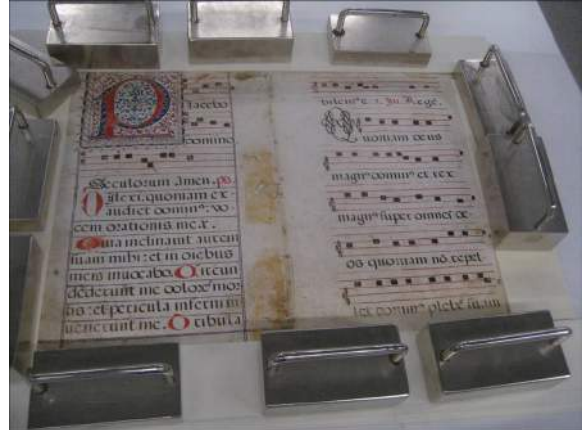 Placebo
Domino
Seculorum Amen. ps.
Dilexi, quoniam ex-
audiet dominꝰ: vo-
cem orationis meæ.
Quia inclinavit aurem
suam mihi: et in diebus
meis invocabo. Circun-
dederunt me dolores mor-
tis: et pericula inferni in-
venerunt me. Tribula
Quoniam deus
magnꝰ dominꝰ et rex
magnꝰ super omnes de-
os quoniam nō repel-
let dominꝰ plebē suam